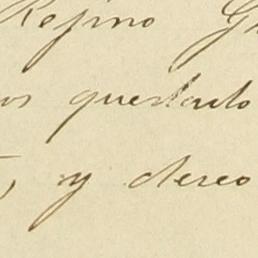 Refino
os quedado
, y dereo